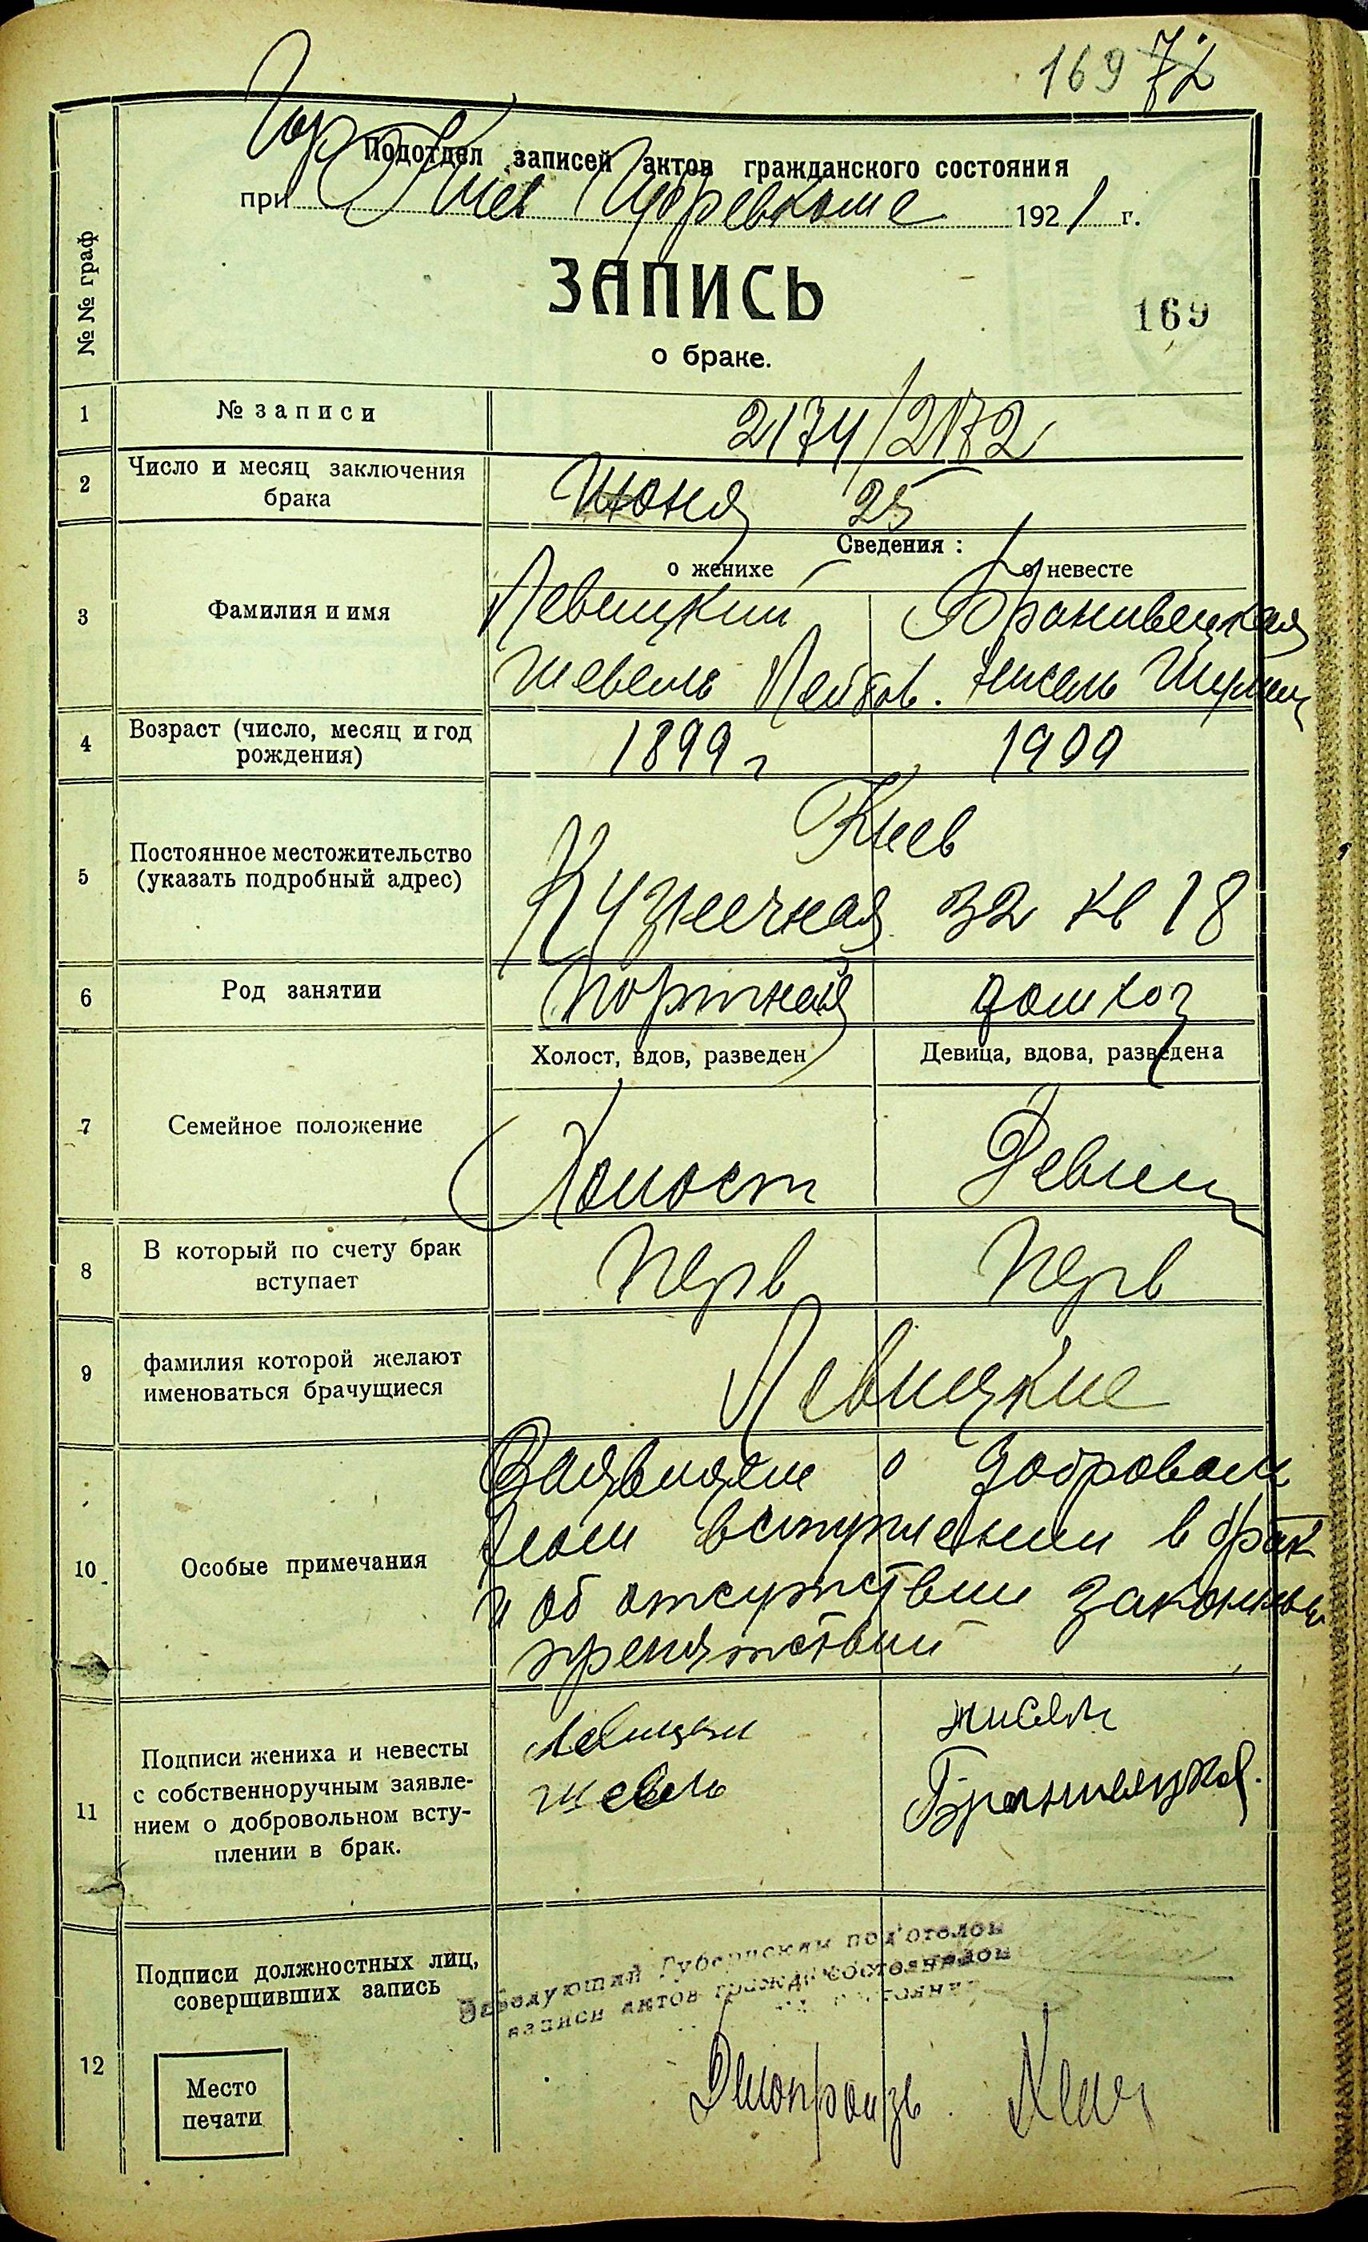 169 72
Гор
Подотдел записей актов гражданского состояния
при Киев Губревкоме 1921 г.
ЗАПИСЬ
169
о браке.
№№ граф
1 № записи 2174/2172
2 Число и месяц заключения
брака
Июня 25
Сведения:
о женихе о невесте
3 Фамилия и имя
Левицкий
Шевель Лейбов.
4 Возраст (число, месяц и год
рождения)
1899 г 1900
5 Постоянное местожительство
(указать подробный адрес)
Киев
Кузнечная 32 кв 18
6 Род занятии Портной домхоз
Холост, вдов, разведен Девица, вдова, разведена
7 Семейное положение Холост Девиц
8 В который по счету брак
вступает
Перв Перв
9 фамилия которой желают
именоваться брачущиеся
Левицкие
10 Особые примечания
Заявляем о доброволь
ном вступлении в брак
и об отсутствии законных
препятствий
11 Подписи жениха и невесты
с собственноручным заявле-
нием о добровольном всту-
плении в брак.
Шевель
12 Подписи должностных лиц,
совершивших запись
Заведующий Губернским под'отделом
записи актов гражд состояния
Делопроизв
Место
печати